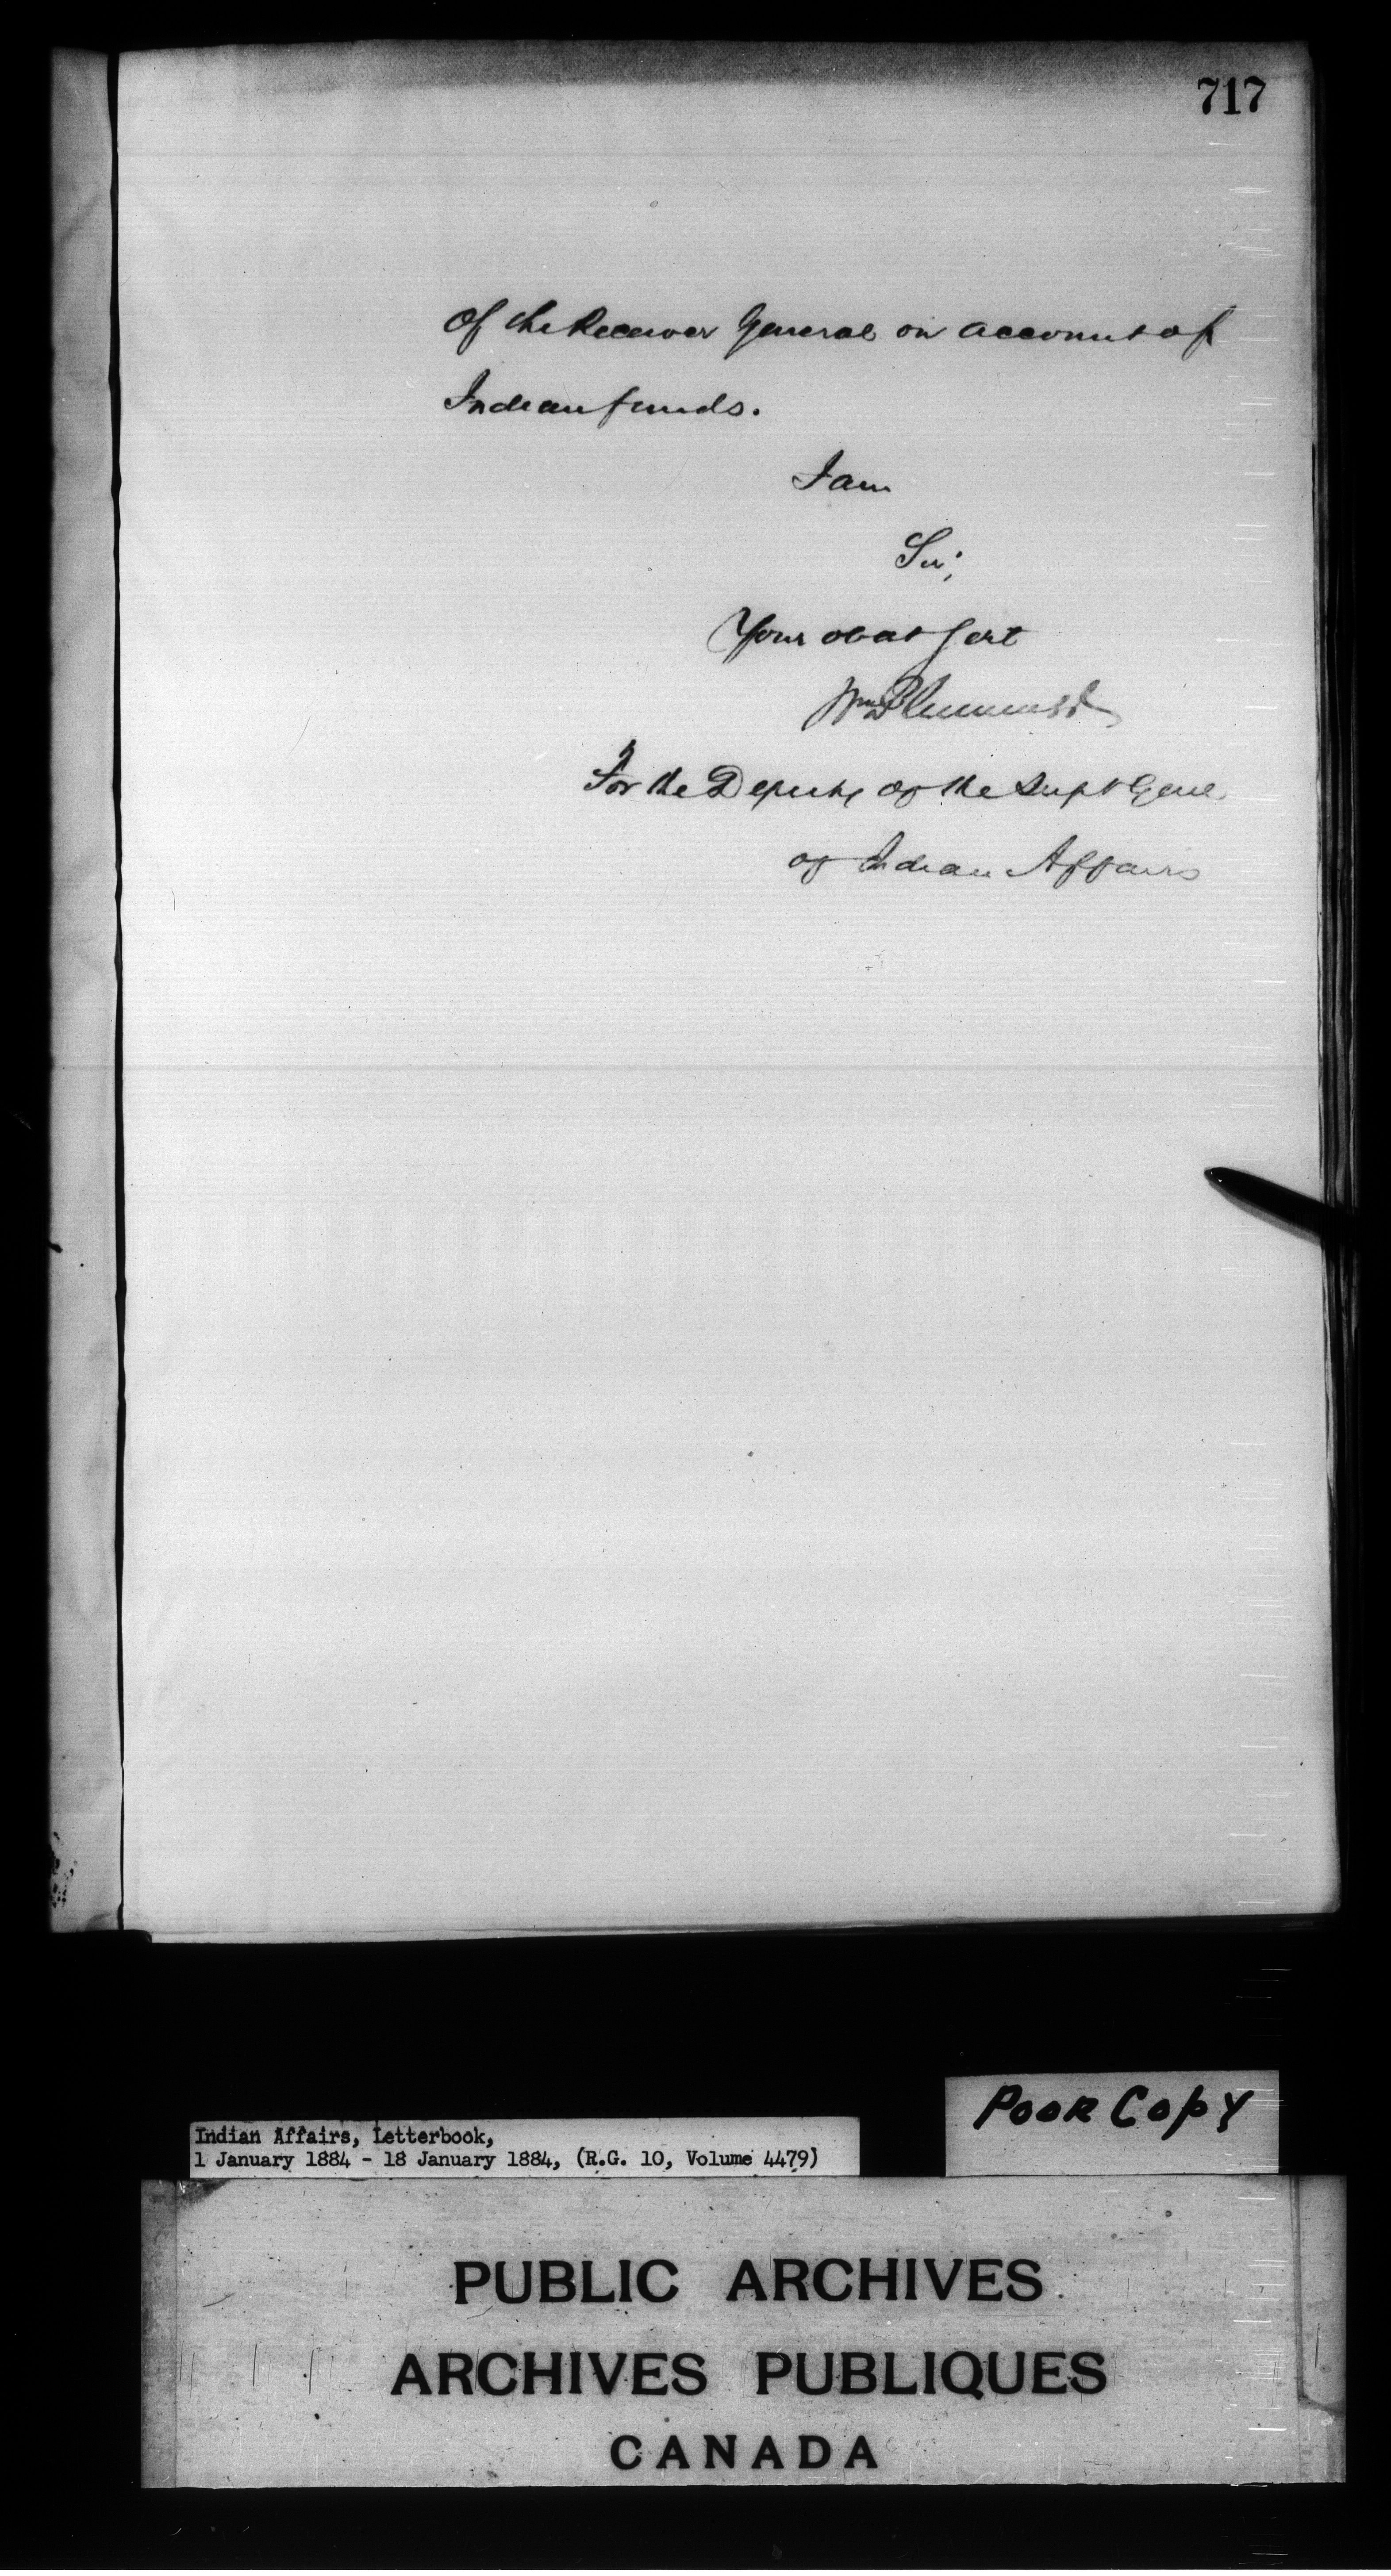 717
of the Receiver General on account of
Indian funds.
I am
Sir,
Your obdt Servt
Wm Plummer
For the Deputy of the Supt Genl
of Indian Affairs
POOR COPY
Indian Affairs, Letterbook,
1 January 1884 - 18 January 1884, (R.G. 10, Volume 4479)
PUBLIC ARCHIVES
ARCHIVES PUBLIQUES
CANADA